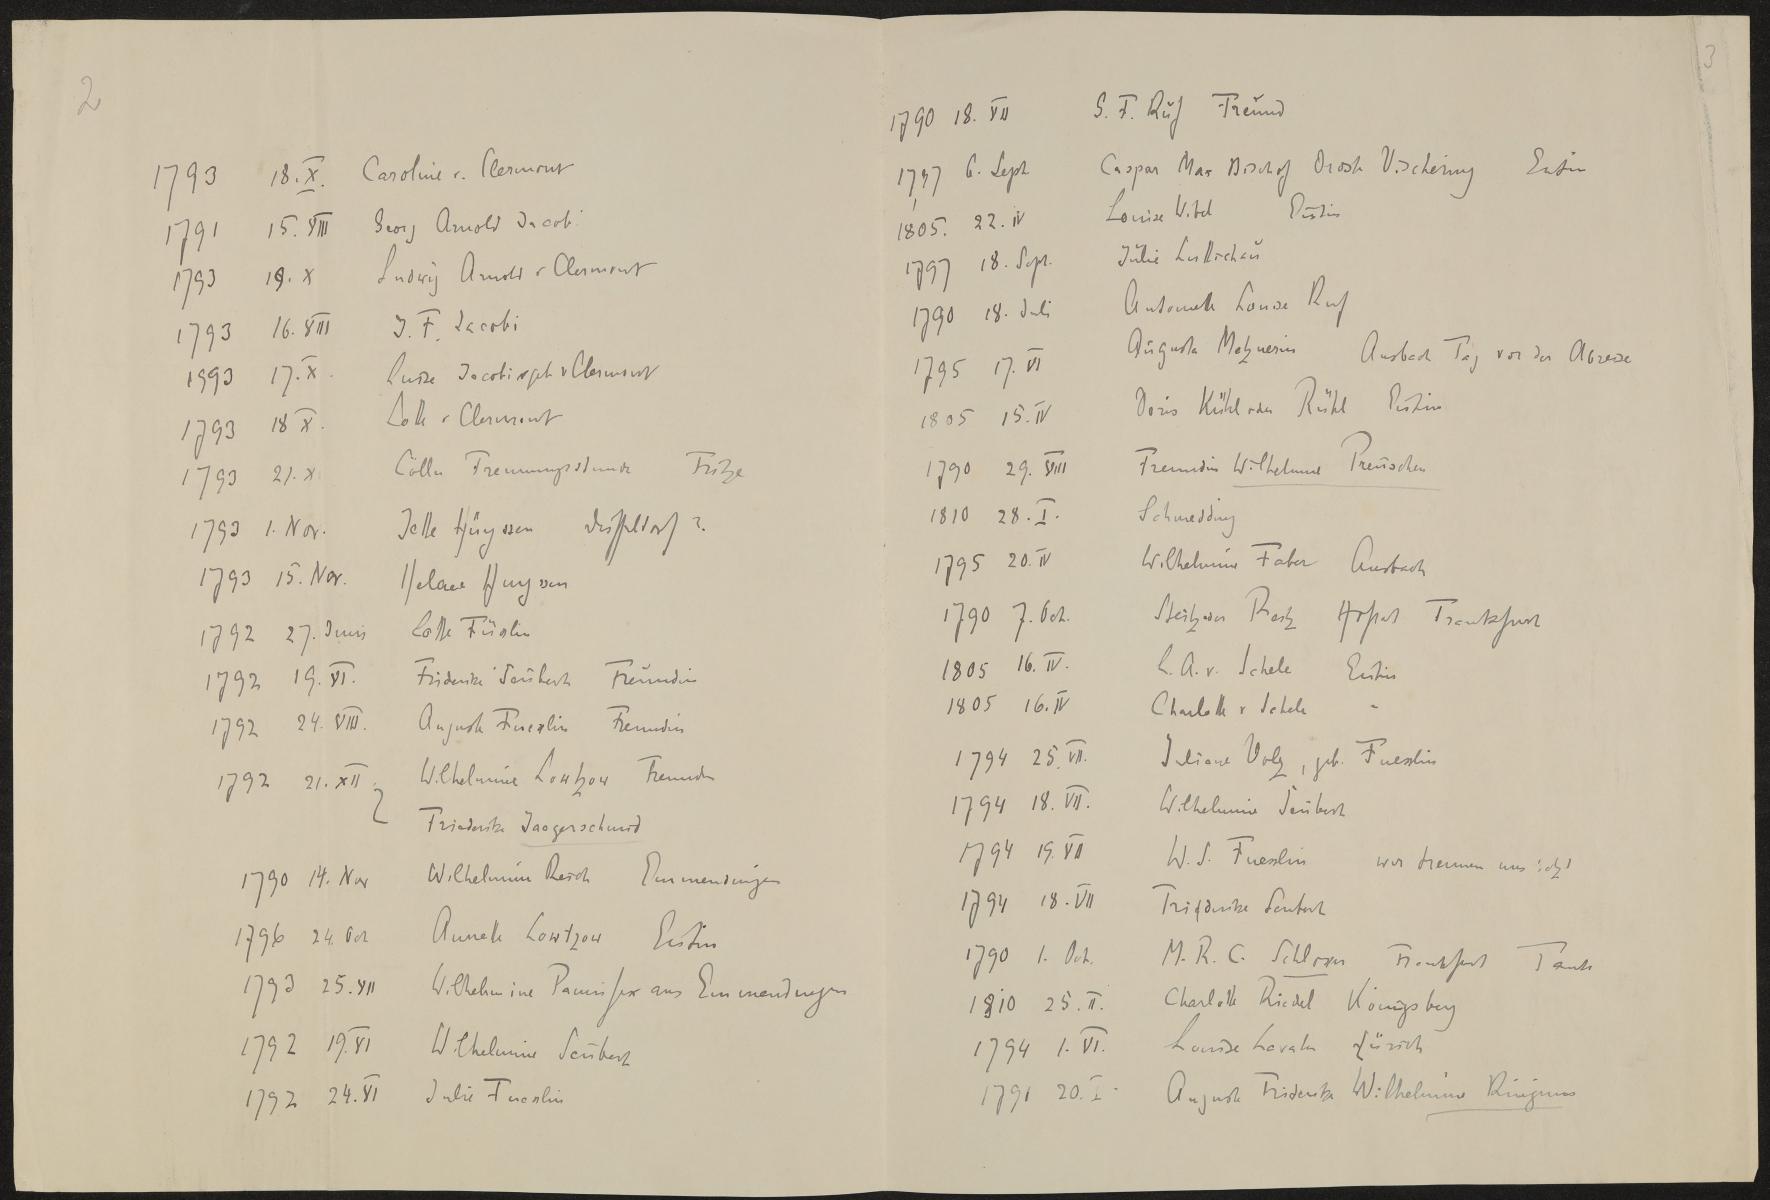 2
1793 18.X. Caroline v. Clermont
1791 15.VIII Georg Arnold Jacobi
1793 19.X Ludwig Arnold v Clermont
1793 16.VIII J. F. Jacobi
1793 17.X. Luise Jacobi geb v Clermont
1793 18 X. Lotte v Clermont
1793 21.X Cölln Trennungsstunde Fritze
1793 1. Nov. Jette Hüyssen Düsseldorf?
1793 15. Nov. Helene Huyssen
1792 27. Junis Lotte Füeslin
1792 19. VI. Friderike Seübert Freündin
1792 24. VIII. Auguste Fueslin Freundin
1792 21. XII Wilhelmine Lowtzow Freundin
Friederike Jaegerschmid
1790 14. Nov Wilhelmine Resch Emmendingen
1796 24. Oct Annette Lowtzow Eutin
1793 25.VII Wilhelmine aus Emmendingen
1792 19.VI Wilhelmine Seübert
1792 24.VI Julie Fueslin
3
1790 18. VII S. F. Rüf Freünd
1797 6. Sept Caspar Max Bischof Droste Vischering Eutin
1805. 22. IV Louise Wibel Eütin
1797 18. Sept. Jülie
1790 18. Juli Antonette Louise Ruf
1795 17. VI Aügusta Metznerin Ansbach Tag vor der Abreise
1805 15. IV Doris Kühl oder Rühl Eütin
1790 29. VIII Freundin Wilhelmine Preüschen
1810 28. I. Schmedding
1795 20. IV Wilhelmine Faber Ansbach
1790 7. Oct. Hofrat Frankfurt
1805 16. IV. L. A. v. Schele Eutin
1805 16. IV Charlotte v Schele "
1794 25. VII. Juliane Volz, geb. Fuesslin
1794 18. VII. Wilhelmine Seübert
1794 19. VII W. S. Fuesslin wir trennen uns jetzt
1794 18. VII Friederike Seubert
1790 1. Oct. M. R. C. Schlosser Frankfurt Tante
1810 25. II. Charlotte Riedel Königsberg
1794 1. VI. Louise Lavater Zürich
1791 20. I. Auguste Friderike Wilhelmine